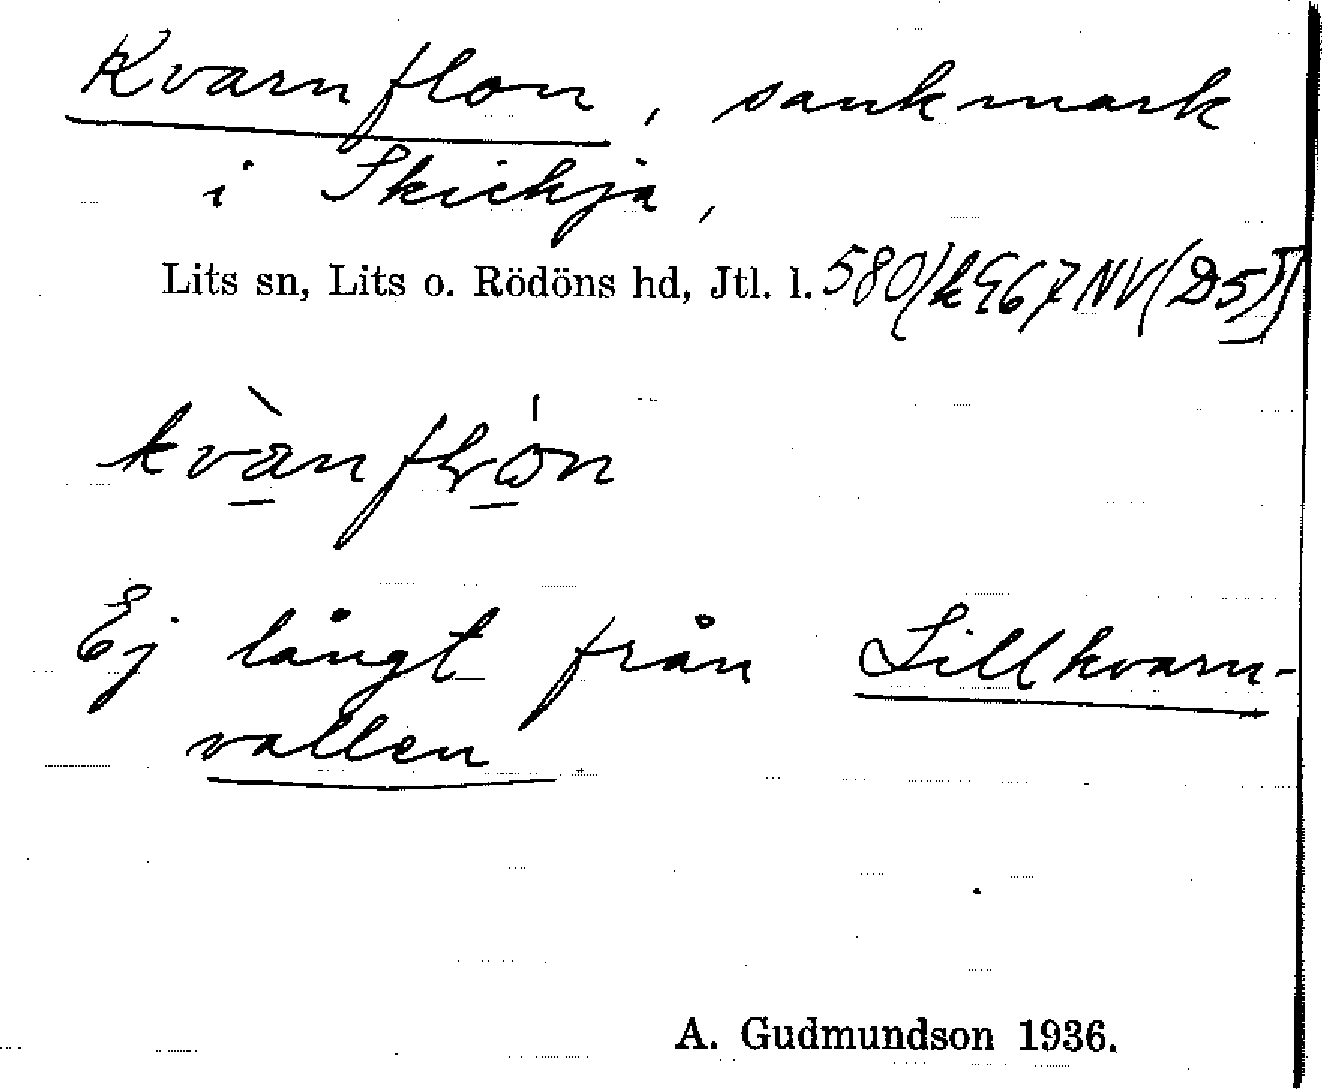 Kvarnflon, sankmark
i Skickja,
Lits sn, Lits o. Rödöns hd, Jtl. l. 580/k967NV(D5)
Ej långt från Lillkvarn-
vallen
A. Gudmundson 1936.